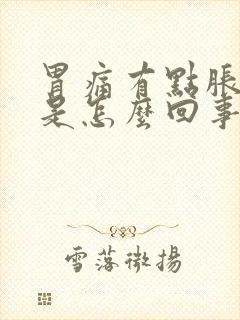 胃痛有點脹
是怎麼回事
雪落微揚